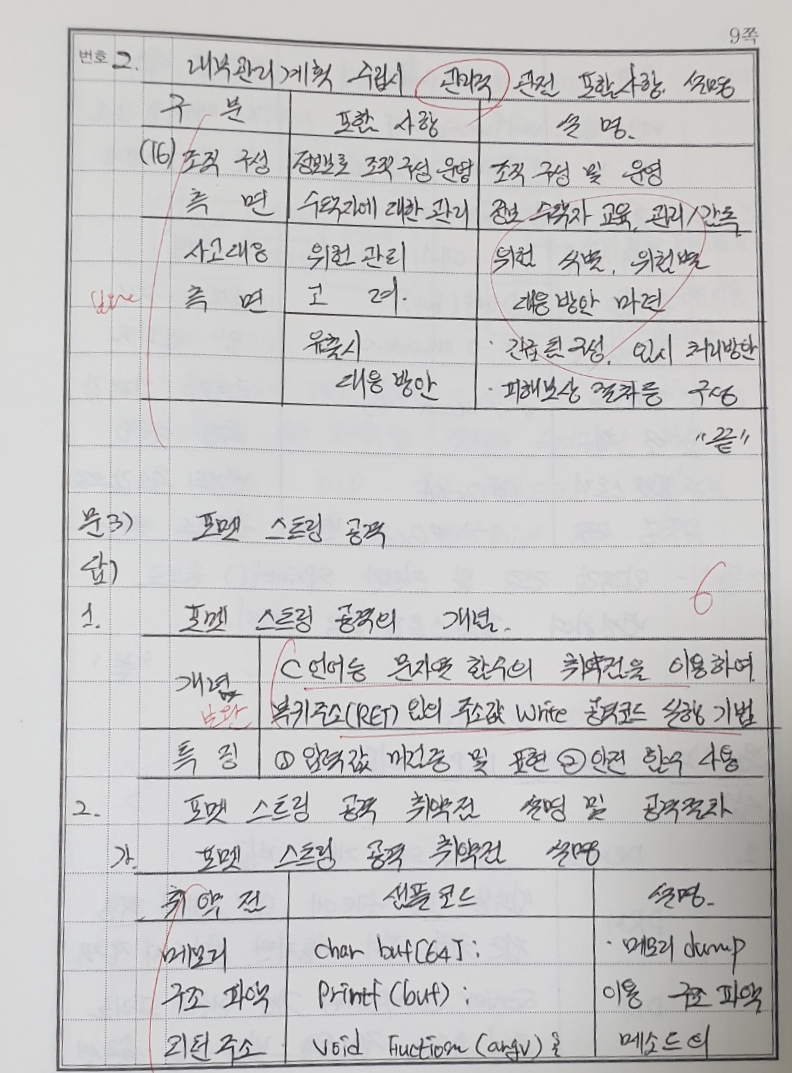 9쪽
번호 2. 내부관리계획 수립시 관리적 관점 포함사항 설명
구 분 포함 사항 설 명.
(16) 조직 구성 정보보호 조직 구성 운영 조직 구성 및 운영
측 면 수탁자에 대한 관리 정보 수탁자 교육, 관리/감독
사고대응 위험 관리 위험 식별, 위험별
측 면 고 려. 대응 방안 마련
유출시 구성, 임시 처리방안
대응 방안 · 피해보상 절차를 구성
"끝"
문3) 포멧 스트링 공격
답)
6
1. 포멧 스트링 공격의 개념.
개념 C언어등 문자열 함수의 취약점을 이용하여
보완 복귀주소(RET) 임의 주소값 Write 공격코드 실행 기법
특 징 ① 입력값 미검증 및 표현 ② 안전 함수 사용
2. 포멧 스트링 공격 취약점 설명 및 공격절차
가. 포멧 스트링 공격 취약점 설명
취 약 점 샘플코드 설명.
메모리 Char buf[64]; · 메모리 dump
구조 파악 Printf(buf); 이용 구조 파악
리턴 주소 Void Fuction(argv) 메소드의